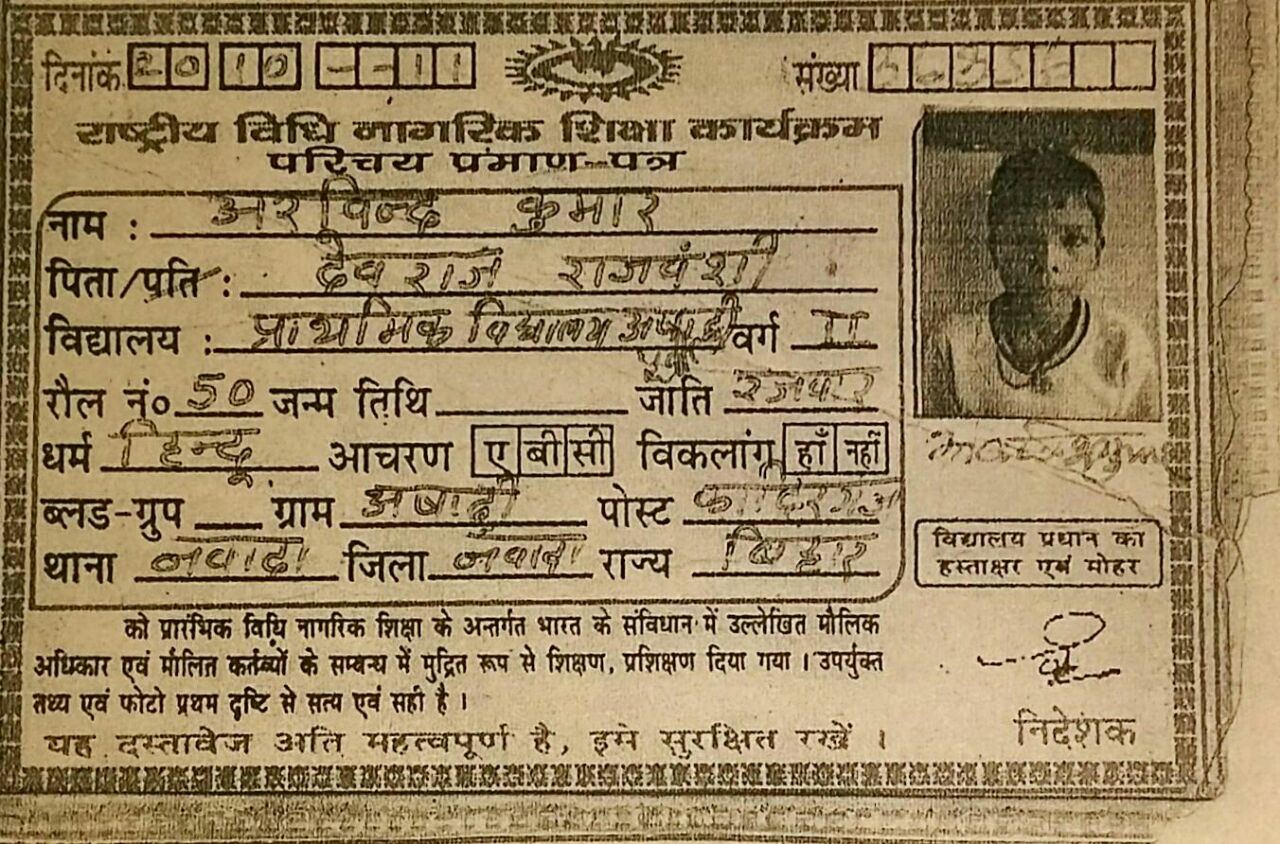 दिनांक 20 10 --11 संख्या
राष्ट्रीय विधि नागरिक शिक्षा कार्यक्रम
परिचय प्रमाण-पत्र
नाम : अरविन्द कुमार
पिता/पति : देवराज राजवंशी
विद्यालय : प्राथमिक विद्यालय अषाढ़ी वर्ग II
रौल नं० 50 जन्म तिथि जाति रजवार
धर्म हिन्दू आचरण ए बी सी विकलांग हाँ नहीं
ब्लड-ग्रुप ग्राम अषाढ़ी पोस्ट
थाना नवादा जिला नवादा राज्य बिहार
विद्यालय प्रधान का
हस्ताक्षर एवं मोहर
को प्रारंभिक विधि नागरिक शिक्षा के अन्तर्गत भारत के संविधान में उल्लेखित मौलिक
अधिकार एवं मौलित कर्तब्यों के सम्बन्ध में मुद्रित रूप से शिक्षण, प्रशिक्षण दिया गया । उपर्युक्त
तथ्य एवं फोटो प्रथम दृष्टि से सत्य एवं सही है ।
यह दस्तावेज अति महत्वपूर्ण है, इसे सुरक्षित रखें ।
निदेशक